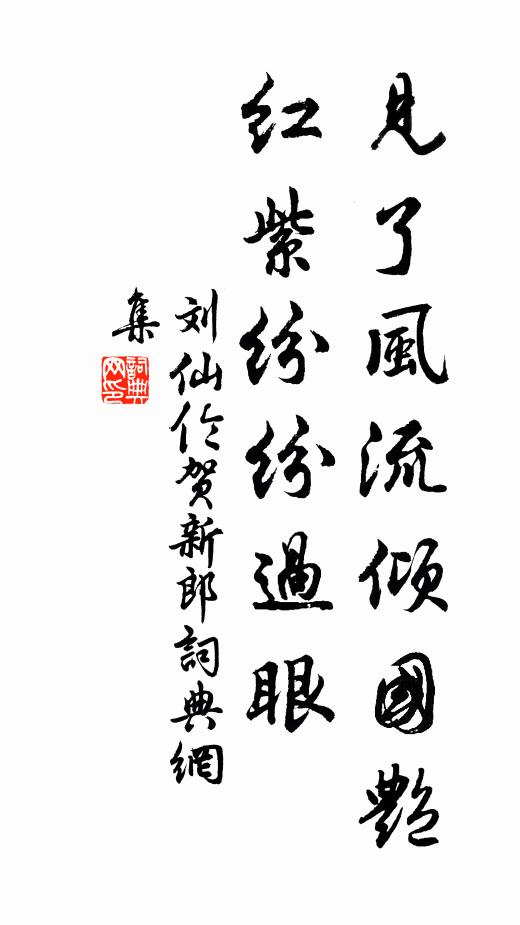 見了風流傾國艷
紅紫紛紛過眼
刘仙伦贺新郎詞典網
集
詞典
网印